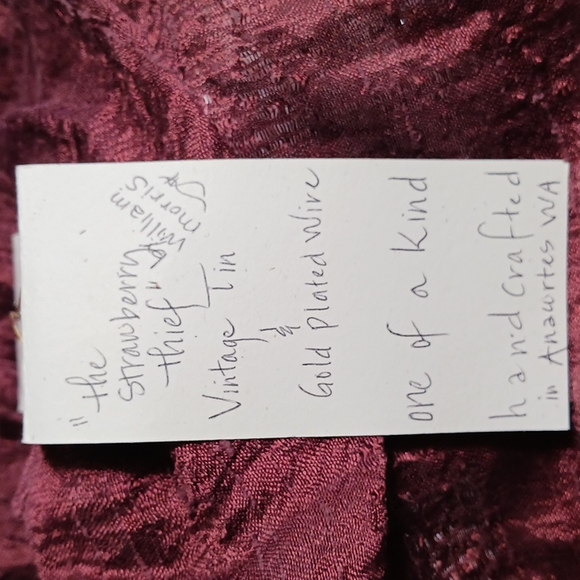 "the
Strawberry
thief" by William
Morris
Vintage Tin
&
Gold plated wire
one of a Kind
handcrafted
in Anacortes WA